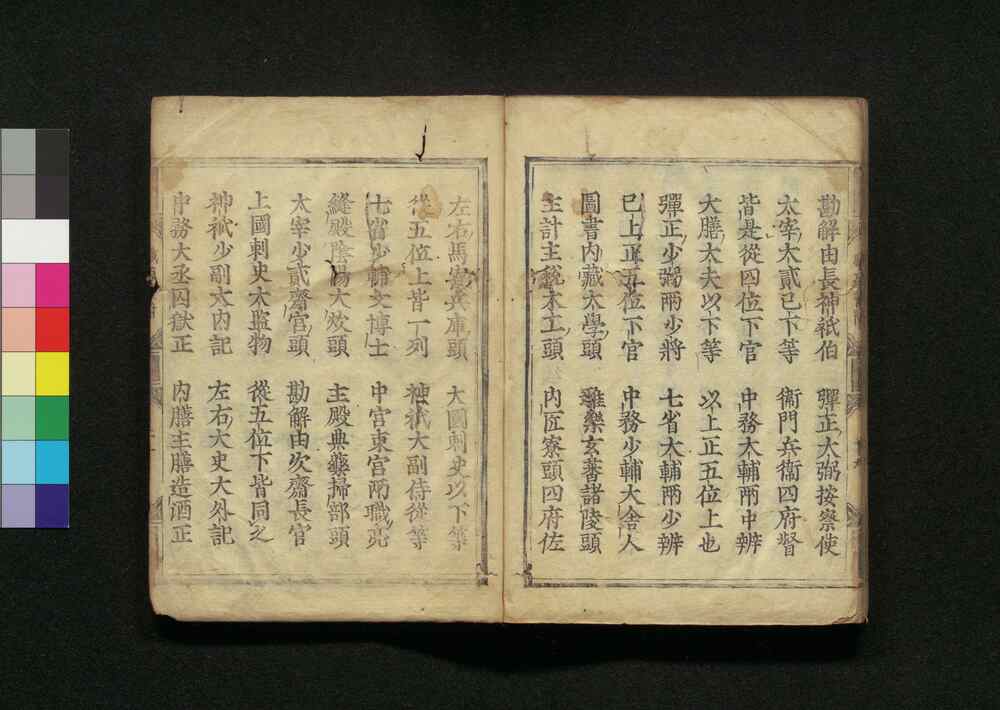 勘解由長神祇伯　彈正大弼按察使
太宰大貳已下等　衞門兵衞四府督
皆是從四位下官　中務大輔兩中辨
大膳大夫以下等　以上正五位上也
彈正少弼兩少將　七省大輔兩少辨
已上正五位下官　中務少輔大舍人
圖書内藏大學頭　雅樂玄蕃諸陵頭
主計主税木工頭　内匠寮頭四府佐
左右馬寮兵庫頭　大國刺史以下等
從五位上皆一列　神祇大副侍從等
七省少輔文博士　中宮東宮兩職亮
縫殿陰陽大炊頭　主殿典藥掃部頭
太宰少貳齋宮頭　勘解由次齋長官
上國刺史大監物　從五位下皆同之
神祇少副大内記　左右大史大外記
中務大丞囚獄正　内膳主膳造酒正